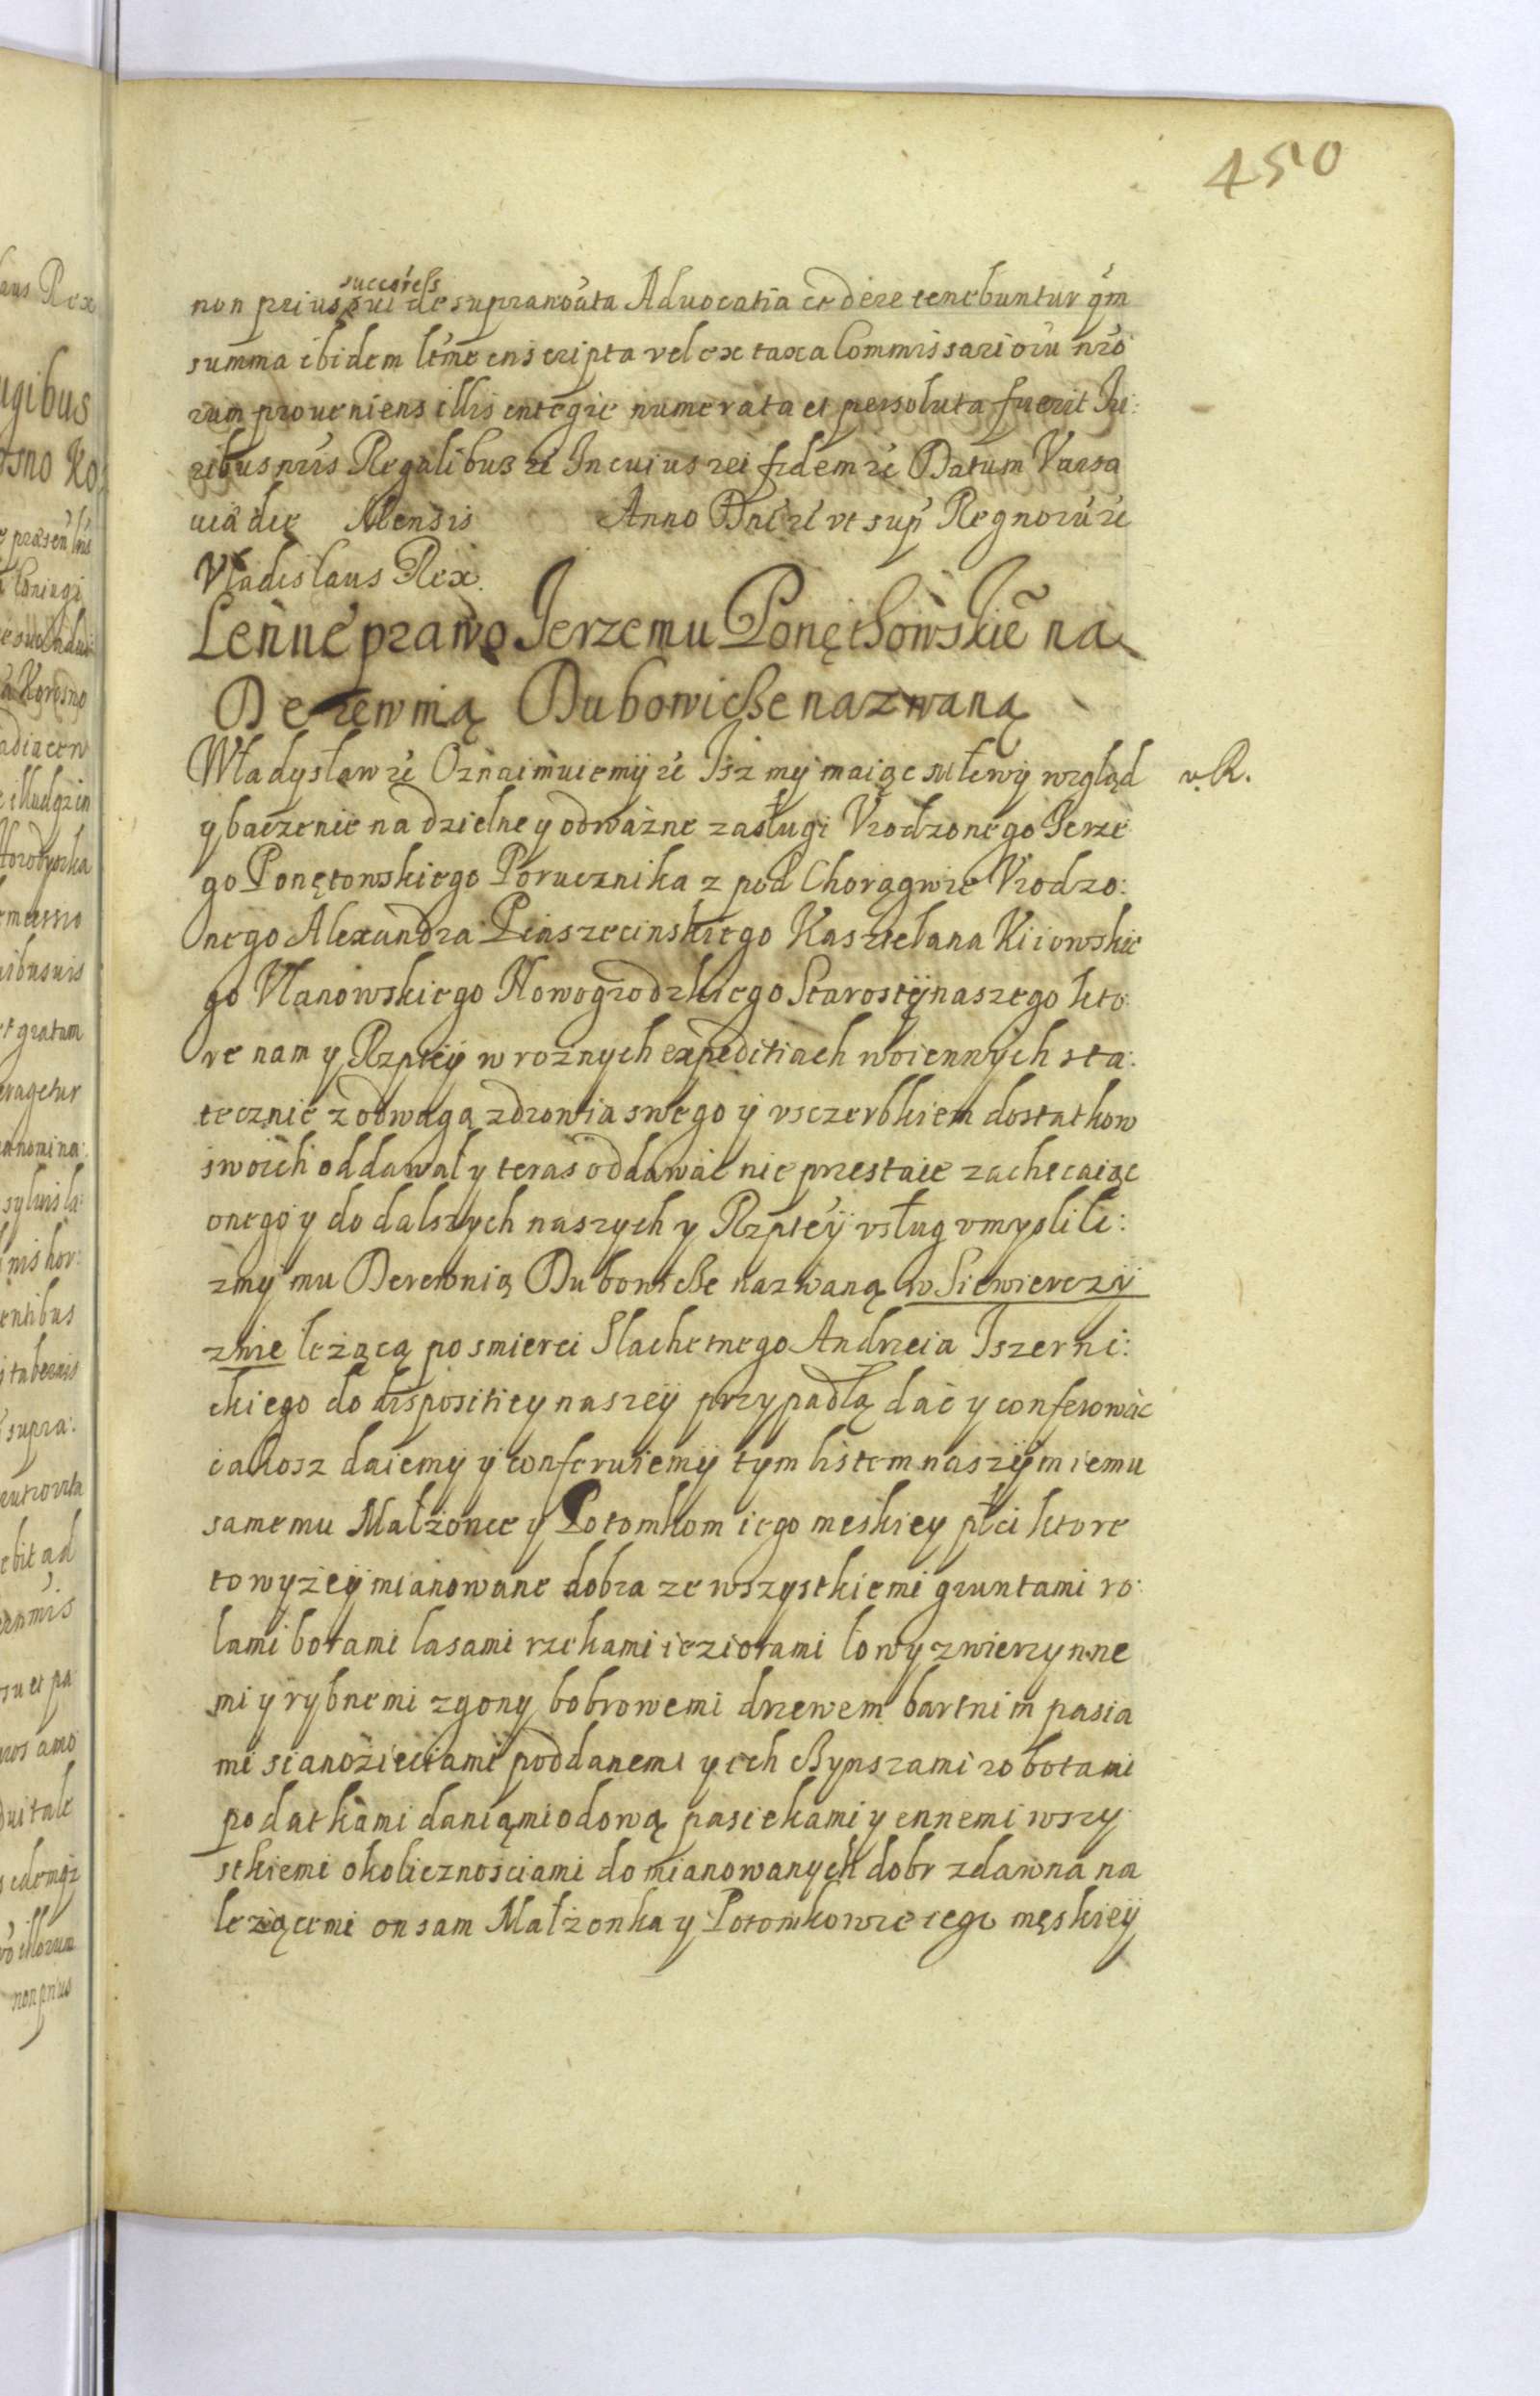 450
success
non prius sui de supranoata Aduocatia cedere tenebuntur qm
summa ibidem ltme inscripta vel ex taxa Commissarioru nro
rum proueniens illis integre numerata et persoluta fuerit Iu:
ribus nris Regalibus rc In cuius rei fidem rc Datum Varsa
uia die Mensis Anno Dni rc vt sup Regnoru rc
Vladislaus Rex.
Lenne prawo Jerzemu Ponęthowskie na
Derewnią Dubowicße nazwaną
Władysław rc Oznaimuiemÿ rc Jsz mÿ maiąc miłewÿ wzgląd v. R.
y baczenie na dzielne y odważne zasługi Vrodzonego Jerze
go Ponętowskiego Porucznika z pod Chorągwie Vrodzo:
nego Alexandra Piaszecinskiego Kasztelana Kiiowskie
go Vlanowskiego Nowogrodzkiego Starostÿ naszego kto
re nam y Rzpteÿ w roznych expeditiach woiennÿch sta:
tecznie z odwagą zdrowia swego ÿ vsczerbkiem dostatkow
swoich oddawał y teras oddawać nie przestaie zachecaiąc
onego y do dalszych naszych y Rzpteÿ vsług vmyslili:
zmÿ mu Derewnią Dubowicße nazwaną w Siewierczÿ
znie leżącą po smierci Slachetnego Andrzeia Jszerni:
ckiego do dispositiey naszeÿ przypadłą dać y conferować
iakosz daiemÿ ÿ conferuiemÿ tym listem naszÿm iemu
samemu Małżonce y Potomkom iego meskiey płci ktore
to wyżeÿ mianowane dobra ze wszystkiemi gruntami ro:
lami borami lasami rzekami ieziorami łowy zwierzynne
mi y rybnemi zgony bobrowemi drzewem bartnim pasia
mi sianożieciami poddanemi y ich cßynszami robotami
podatkami danią miodową pasiekami y ennemi wszy
stkiemi okolicznosciami do mianowanych dobr zdawna na
leżącemi on sam Małżonka y Potomkowie iego męskieÿ